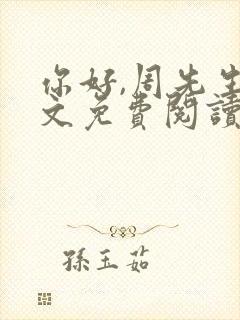 你好,周先生
文免費閱讀
孫玉茹